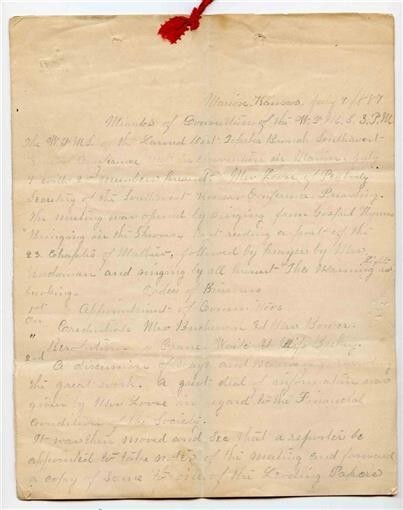 Marion, Kansas, July 7, 1887
Minutes of Convention of the W.F.M.S. 3 P.M.
The W.F.M.S. of the Larned West Branch Southwest
Conference in convention in Marion, July
7 with 22 members present. Mrs of Peabody
Secretary of the Southwest Kansas Conference Presiding.
The meeting was opened by singing from Gospel Hymns
"Bringing in the Sheaves" and reading a part of the
23 Chapter of Mathew, followed by prayer by Mrs
and singing by all present "The Morning Light is
breaking. Order of Business
1st Appointment of Committees
On Credentials Mrs Buchanan Mrs Bower.
" Resolutions Waite
2nd A discussion of ways and means
the great work. A great deal of information was
given by Mrs in regard to the Financial
Condition of the Society.
It was then moved and sec that a reporter be
appointed to take notes of the meeting and forward
a copy of same to one of the Leading Papers